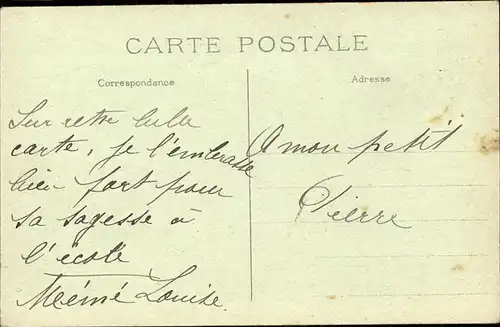 CARTE POSTALE
Correspondance
Adresse
Sur cette
carte, je l'embrasse
bien fort pour
sa sagesse à
l'école
Mémé Louise
A mon petit
Pierre